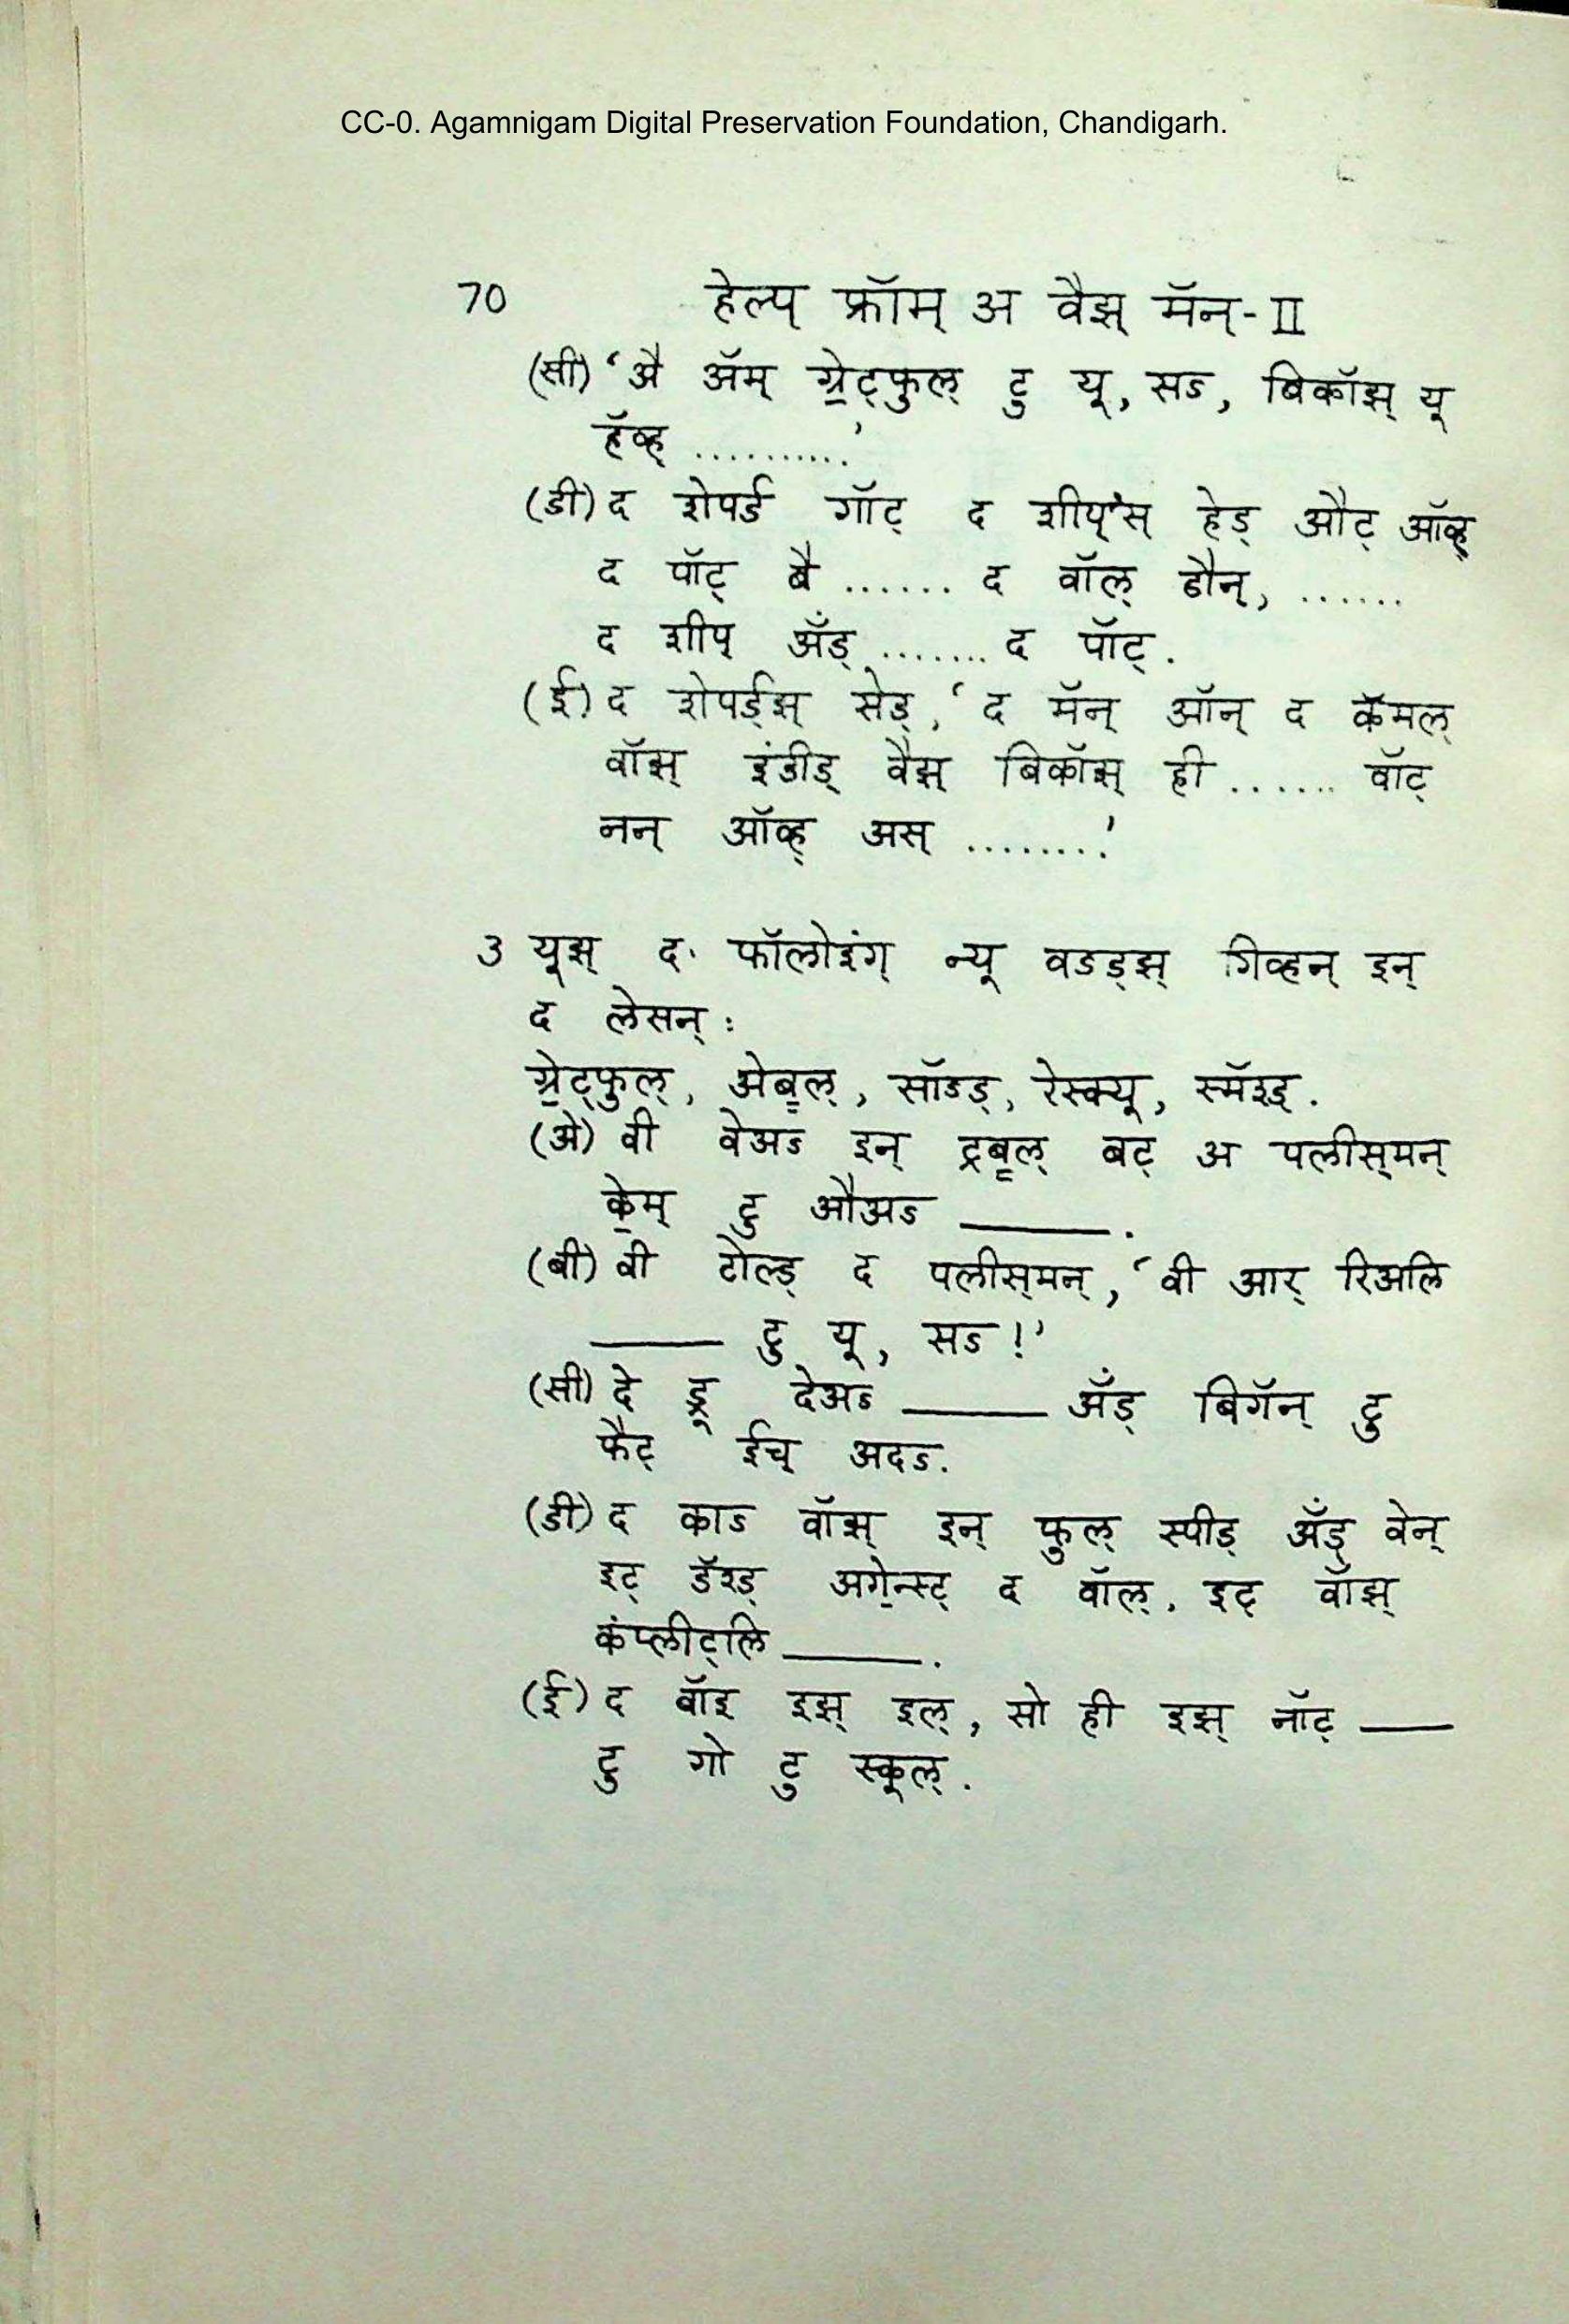 CC-0. Agamnigam Digital Preservation Foundation, Chandigarh.
70 हेल्प् फ्रॉम् अ वैझ् मॅन्-II
(सी) ‘अै ॲम् ग्रे॒ट्फुल् टु यू, सऽ, बिकॉझ् यू
हॅव्ह् ..........’
(डी) द शेपर्ड गॉट् द शीप्'स् हेड् औट् ऑव्ह्
द पॉट् बै ....... द वॉल् डौन्, ......
द शीप् अँड् ....... द पॉट्.
(ई) द शेपर्ड्झ् सेड्, ‘द मॅन् ऑन् द कॅमल्
वॉझ् इंडीड् वैझ् बिकॉझ् ही ...... वॉट्
नन् ऑव्ह् अस् ........’
3 यूझ् द फॉलोइंग् न्यू वऽड्झ् गिव्हन् इन्
द लेसन् :
ग्रे॒ट्फुल्, अेबॢल्, सॉऽड्, रेस्क्यू, स्मॅश्ड्.
(अे) वी वेअऽ इन् ट्रबॢल् बट् अ पलीस्‌मन्
के॒म् टु औअऽ ______.
(बी) वी टोल्ड् द पलीस्‌मन्, ‘वी आर् रिअलि
______ टु यू, सऽ!’
(सी) दे ड्रू देअऽ ______ अँड् बिगॅन् टु
फैट् ईच् अदऽ.
(डी) द काऽ वॉझ् इन् फुल् स्पीड् अँड् वेन्
इट् डॅश्ड् अगे॒न्स्ट् द वॉल्. इट् वॉझ्
कंप्लीट्लि ______.
(ई) द बॉइ इझ् इल्, सो ही इझ् नॉट् ____
टु गो टु स्कूल्.